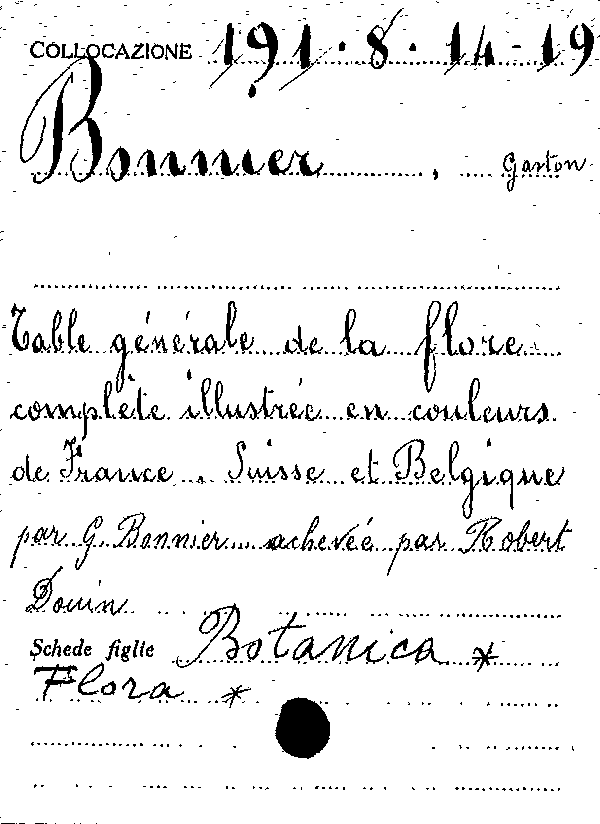 COLLOCAZIONE 191.8.14-19
Bonnier, Gaston
Table générale de la flore
complète illustrée en couleurs
de France, Suisse et Belgique
par G. Bonnier achevée par Robert
Douin
Schede figlie Botanica *
Flora *